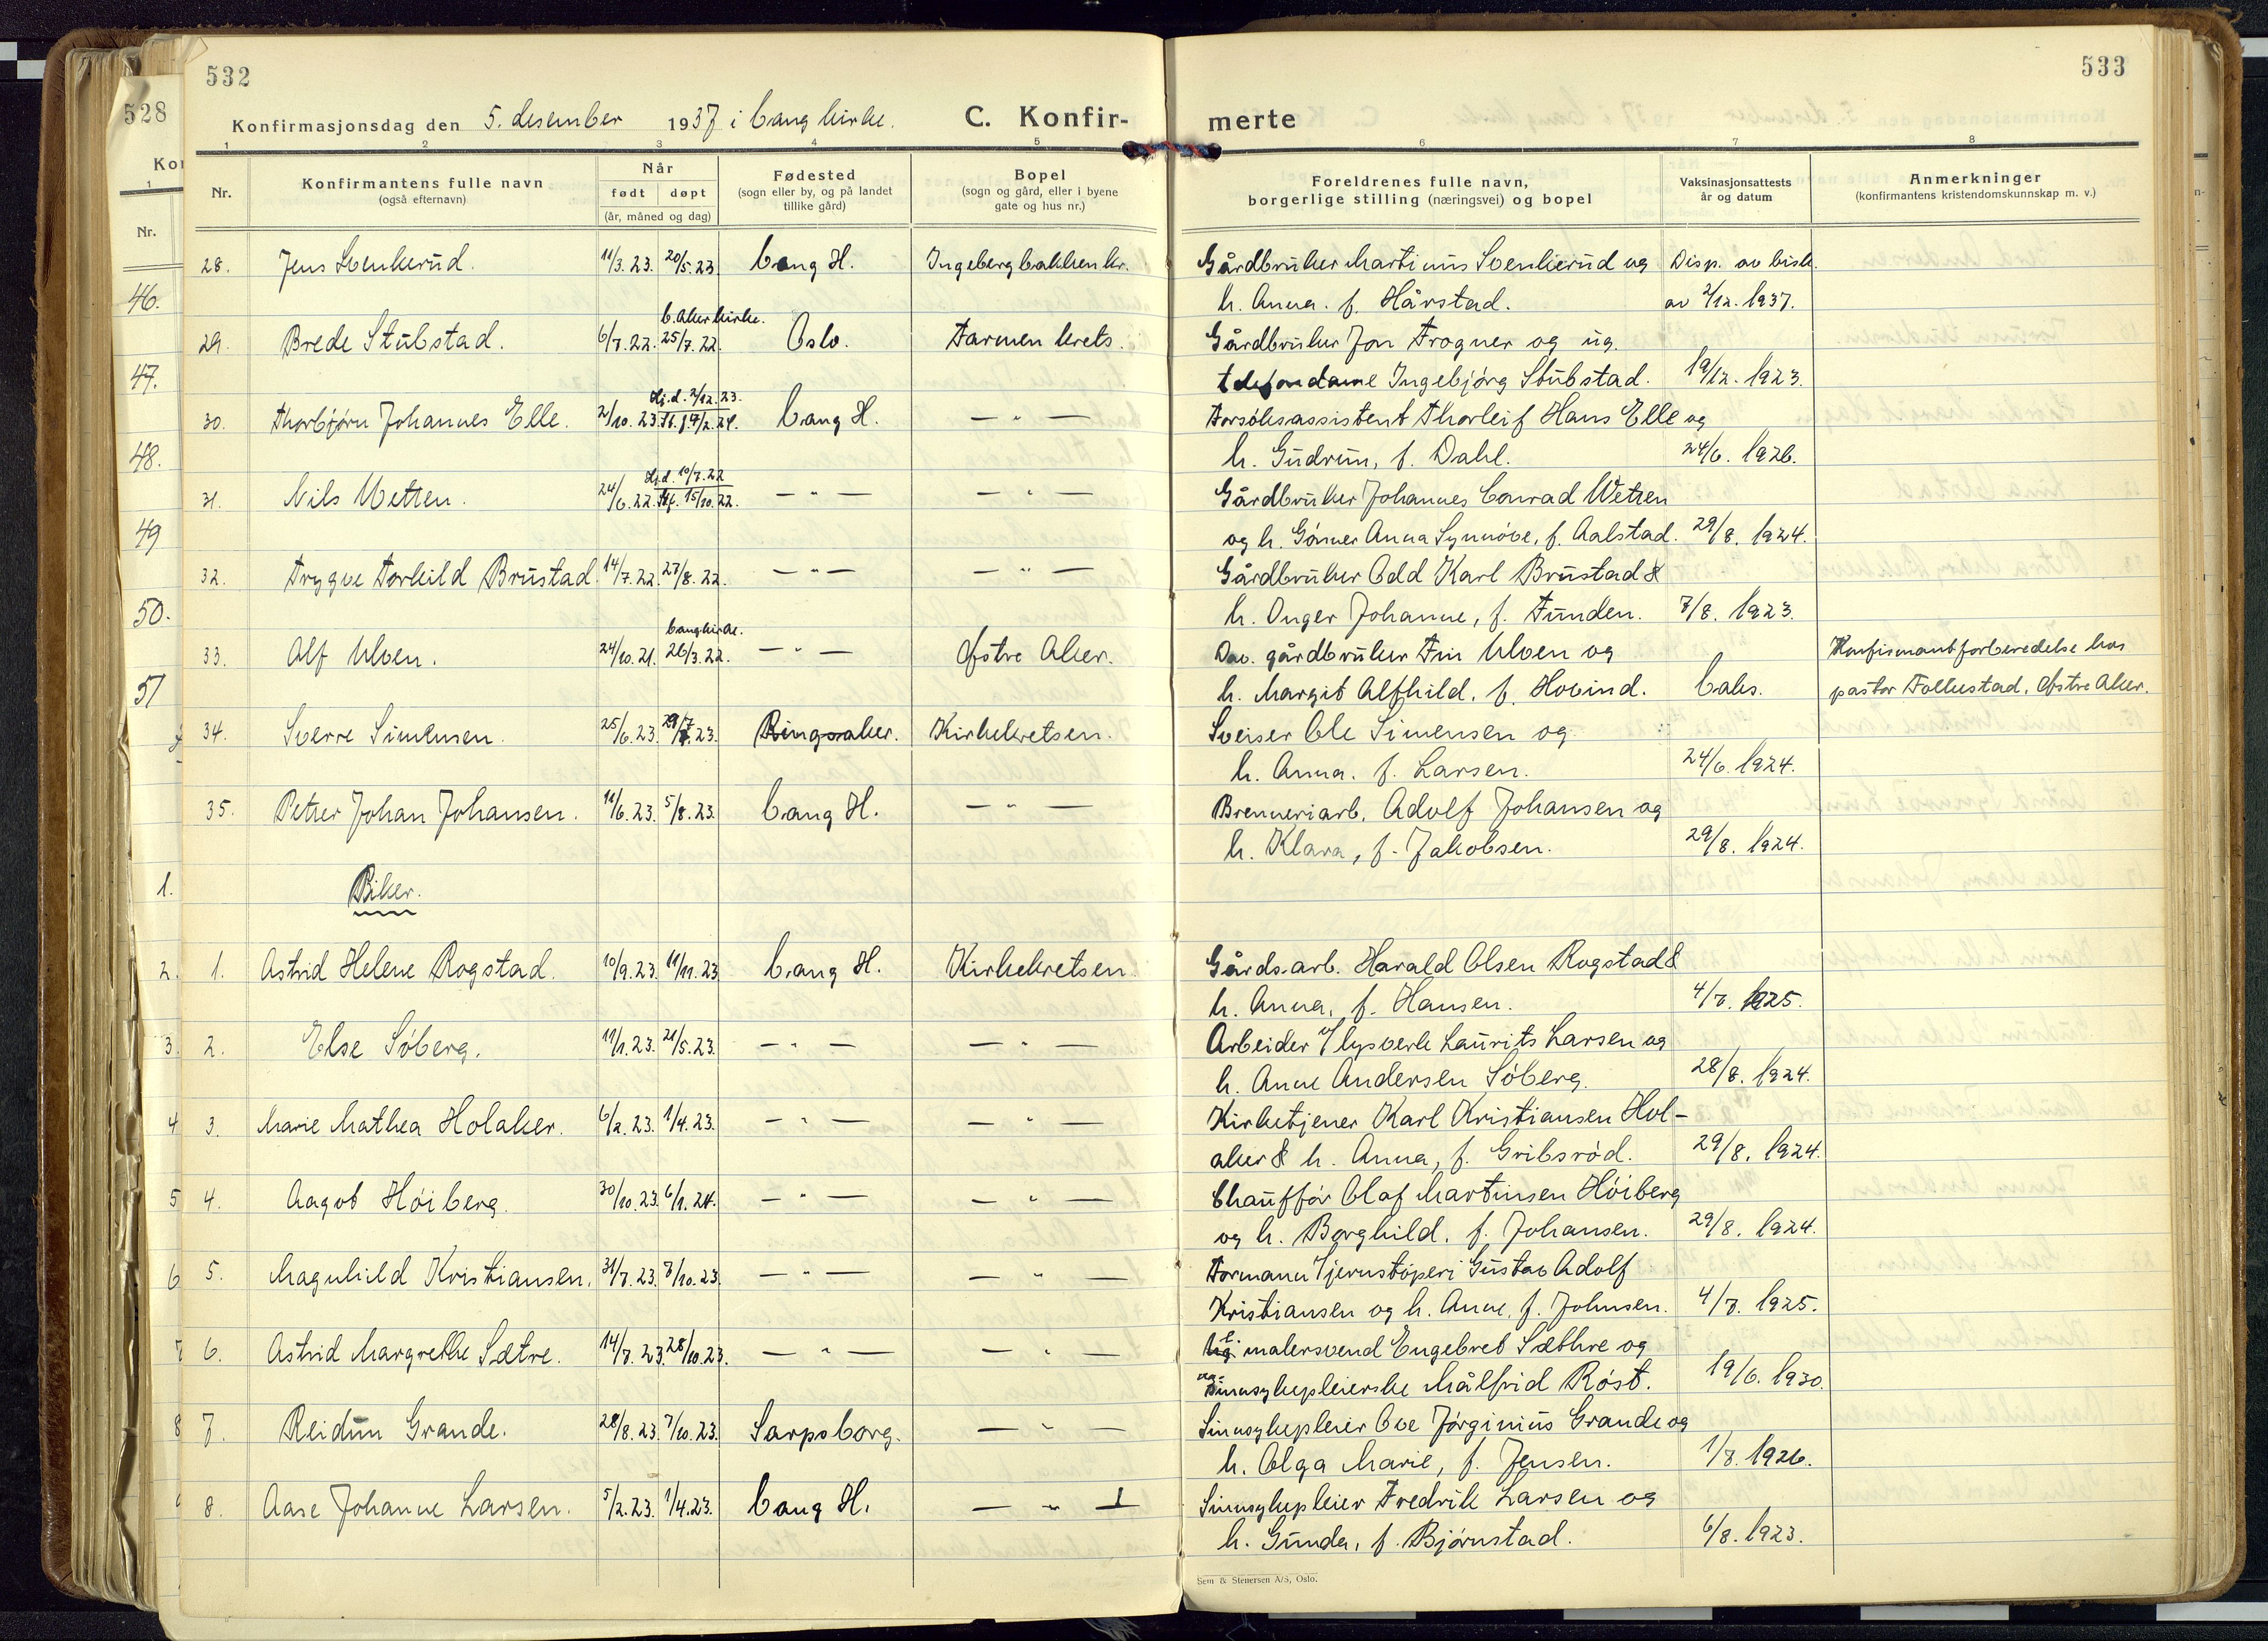 532
533
528
Konfirmasjonsdag den 5. desember 1937 i Vang kirke. C. Konfir-
merte
1 2 3 4 5 6 7 8
Nr.
Konfirmantens fulle navn
(også efternavn)
Når
født døpt
(år, måned og dag)
Fødested
(sogn eller by, og på landet
tillike gård)
Bopel
(sogn og gård, eller i byene
gate og hus nr.)
Foreldrenes fulle navn,
borgerlige stilling (næringsvei) og bopel
Vaksinasjonsattests
år og datum
Anmerkninger
(konfirmantens kristendomskunnskap m. v.)
Kon
1
Nr.
46.
47.
48.
49
50.
51
1.
2.
3.
4
5
6
7
8
28. Jens Svenkerud. 11/3. 23. 20/5. 23. Vang H. Ingebergbakken kr. Gårdbruker Martinus Svenkerud og Disp. av bisk.
h. Anna. f. Hårstad. av 2/12. 1937.
V. Aker kirke.
29. Brede Stubstad. 6/7. 22. 25/7. 22. Oslo. Farmen krets. Gårdbruker Jon Frogner og ug.
telefondame Ingebjørg Stubstad. 19/12. 1923.
Hj.d. 2/12. 23.
30. Thorbjørn Johannes Elle. 2/10. 23. St. f. 17/2. 24. Vang H. — " — Forsøksassistent Thorleif Hans Elle og
h. Gudrun, f. Dahl. 24/6. 1926.
Hj.d. 10/7. 22
31. Nils Wetten. 24/6. 22. Stf. 15/10. 22. — " — — " — Gårdbruker Johannes Conrad Wetten
og h. Gønner Anna Synnøve, f. Aalstad. 29/8. 1924.
32. Trygve Torkild Brustad. 14/7. 22. 27/8. 22. — " — — " — Gårdbruker Odd Karl Brustad &
h. Inger Johanne, f. Funden. 7/8. 1923.
Vang kirke.
33. Alf Ulven. 24/10. 21. 26/3. 22. — " — Østre Aker. Dav. gårdbruker Finn Ulven og Konfirmantforberedelse hos
h. Margit Alfhild. f. Hovind. Vaks. pastor Follestad, Østre Aker.
34. Sverre Simensen. 25/6. 23. 29/7. 23. Ringsaker. Kirkekretsen. Sveiser Ole Simensen og
h. Anna. f. Larsen. 24/6. 1924.
35. Petter Johan Johansen. 11/6. 23. 5/8. 23. Vang H. — " — Brenneriarb. Adolf Johansen og
h. Klara, f. Jakobsen. 29/8. 1924.
Piker.
1. Astrid Helene Rogstad. 10/9. 23. 11/11. 23 Vang H. Kirkekretsen. Gårds-arb. Harald Olsen Rogstad &
h. Anna, f. Hansen. 4/7. 1925.
2. Else Søberg. 19/1. 23. 21/5. 23. — " — — " — Arbeider v/lysverk Laurits Larsen og
h. Anne Andersen Søberg. 28/8. 1924.
3. Marie Mathea Holaker. 6/2. 23. 1/4. 23. — " — — " — Kirketjener Karl Kristiansen Hol-
aker & h. Anna, f. Gribsrød. 29/8. 1924.
4. Aagot Høiberg. 30/10. 23. 6/1. 24. — " — — " — Chauffør Olaf Martinsen Høiberg
og h. Borghild. f. Johansen. 29/8. 1924.
5. Magnhild Kristiansen. 31/7. 23. 7/10. 23. — " — — " — Formann v/jernstøperi Gustav Adolf
Kristiansen og h. Anne, f. Johnsen. 4/7. 1925.
6. Astrid Margrethe Sætre. 14/7. 23. 28/10. 23. — " — — " — malersvend Engebret Sæthre og
sinnsykepleierske Målfrid Røst. 19/6. 1930.
7. Reidun Grande. 28/8. 23. 7/10. 23. Sarpsborg. — " — Sinnsykepleier Ove Jørginius Grande og
h. Olga Marie, f. Jensen. 1/7. 1926.
8. Aase Johanne Larsen. 5/2. 23. 1/4. 23. Vang H. — " — Sinnsykepleier Fredrik Larsen og
h. Gunda, f. Bjørnstad. 6/8. 1923.
Sem & Stenersen A/S, Oslo.